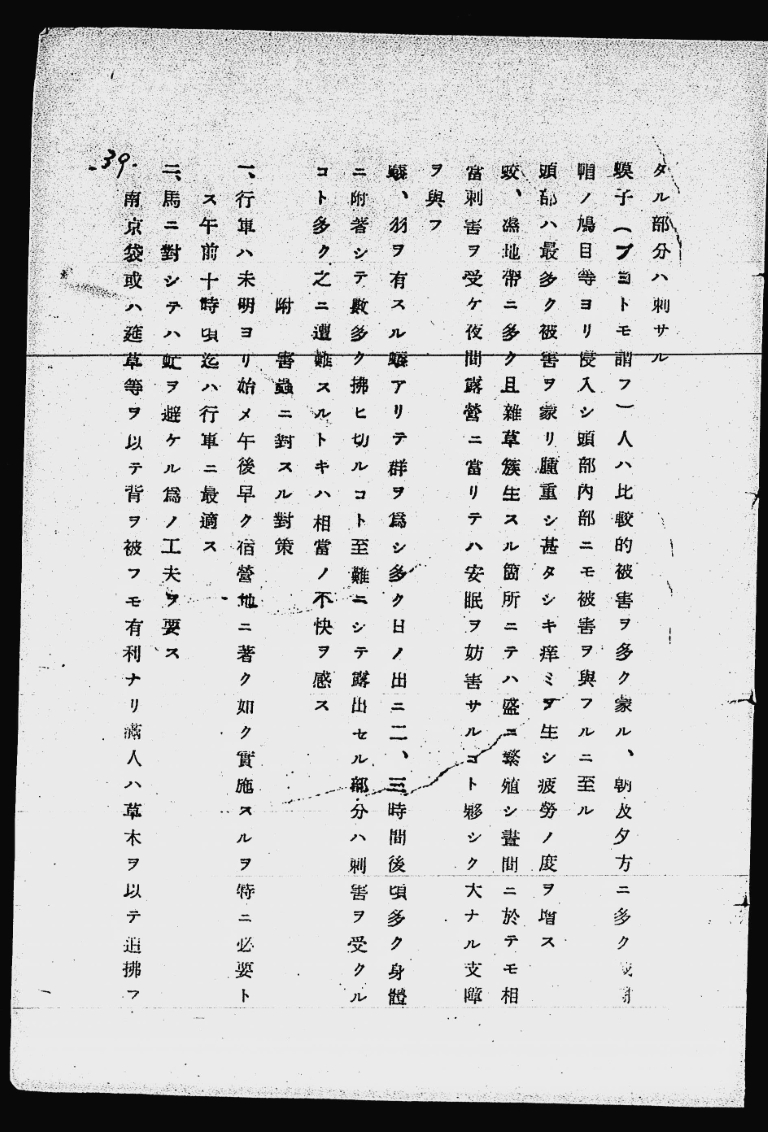 タル部分ハ刺サル
蟆子(ブヨトモ謂フ)人ハ比較的被害ヲ多ク蒙ル、朝及夕方ニ多ク
帽ノ鳩目等ヨリ侵入シ頭部內部ニモ被害ヲ與フルニ至ル
頭部ハ最多ク被害ヲ蒙リ腫重シ甚タシキ痒ミヲ生シ疲勞ノ度ヲ增ス
蛟、濕地帶ニ多ク且雜草簇生スル箇所ニテハ盛ニ繁殖シ晝間ニ於テモ相
當刺害ヲ受ケ夜間露營ニ當リテハ安眠ヲ妨害サルコト夥シク大ナル支障
ヲ與フ
蟻、羽ヲ有スル蟻アリテ群ヲ爲シ多ク日ノ出ニ二、三時間後頃多ク身體
ニ附著シテ數多ク拂ヒ切ルコト至難ニシテ露出セル部分ハ刺害ヲ受クル
コト多ク之ニ遭難スルトキハ相當ノ不快ヲ感ス
附 害蟲ニ對スル對策
一、行軍ハ未明ヨリ始メ午後早ク宿營地ニ著ク如ク實施スルヲ特ニ必要ト
ス午前十時頃迄ハ行軍ニ最適ス
二、馬ニ對シテハ虻ヲ避ケル爲ノ工夫ヲ要ス
南京袋或ハ莚草等ヲ以テ背ヲ被フモ有利ナリ滿人ハ草木ヲ以テ追拂フ
-39-